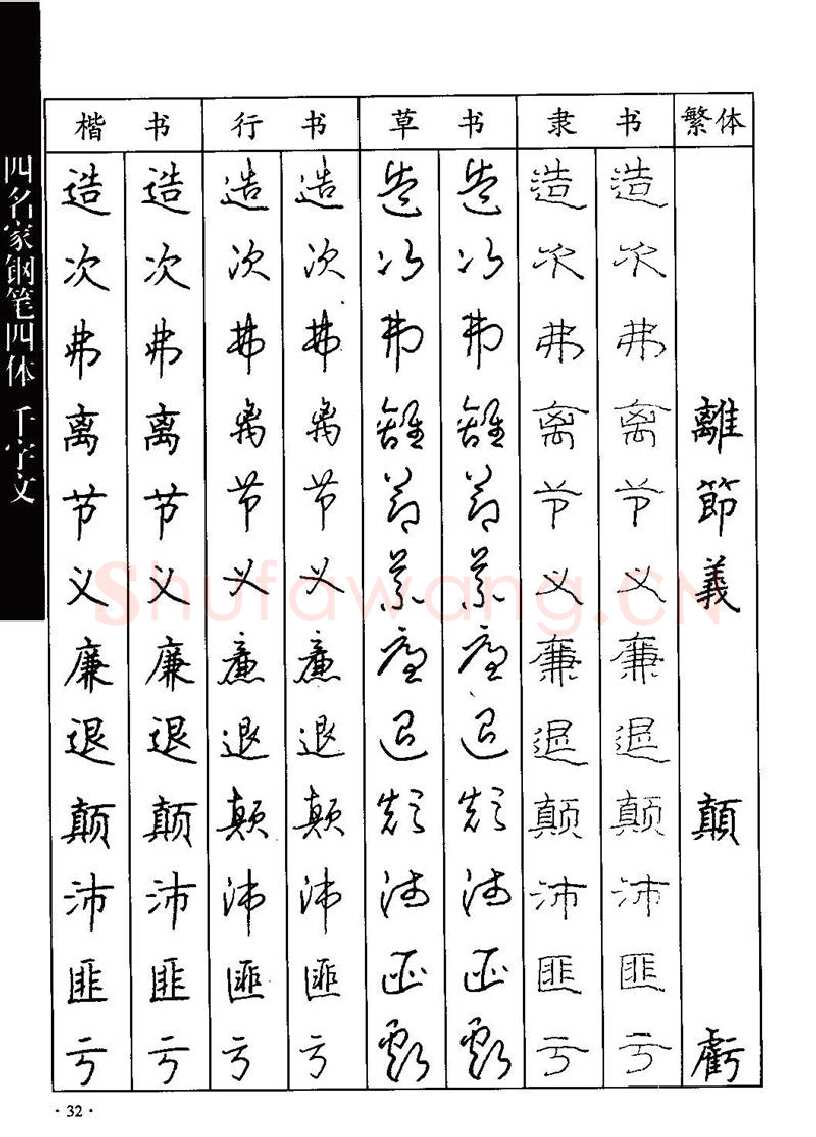 四名家钢笔四体 千字文
楷书 行书 草书 隶书 繁体
造 造 造 造 造 造 造 造
次 次 次 次 次 次 次 次
弗 弗 弗 弗 弗 弗 弗 弗
离 离 离 离 離 離 离 离 離
节 节 节 节 節 節 节 节 節
义 义 义 义 義 義 义 义 義
廉 廉 廉 廉 廉 廉 廉 廉
退 退 退 退 退 退 退 退
颠 颠 颠 颠 颠 颠 颠 颠 顛
沛 沛 沛 沛 沛 沛 沛 沛
匪 匪 匪 匪 匪 匪 匪 匪
亏 亏 亏 亏 虧 虧 亏 亏 虧
shufawang.CN
·32·